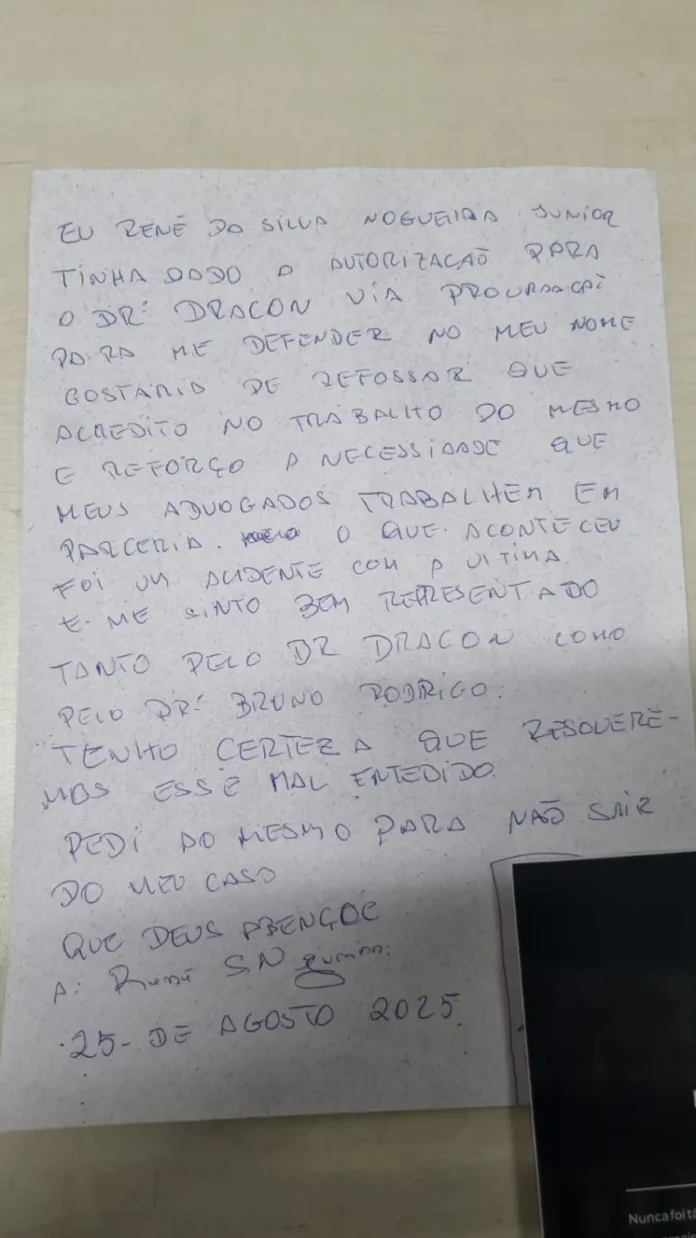 EU RENÉ DA SILVA NOGUEIRA JUNIOR
TINHA DADO A AUTORIZAÇÃO PARA
O DR: DRACON VIA PROCURAÇÃO
PARA ME DEFENDER NO MEU NOME
GOSTARIA DE REFOSSAR QUE
ACREDITO NO TRABALHO DO MESMO
E REFORÇO A NECESSIDADE QUE
MEUS ADVOGADOS TRABALHEM EM
PARCERIA. O QUE ACONTECEU
FOI UM ACIDENTE COM A VITIMA
E ME SINTO BEM REPRESENTADO
TANTO PELO DR DRACON COMO
PELO DR: BRUNO RODRIGO.
TENHO CERTEZA QUE RESOLVERE-
MOS ESSE MAL ENTEDIDO.
PEDI AO MESMO PARA NÃO SAIR
DO MEU CASO
QUE DEUS ABENÇOE
A: René S N Junior.
25- DE AGOSTO 2025.
Nunca foi tã